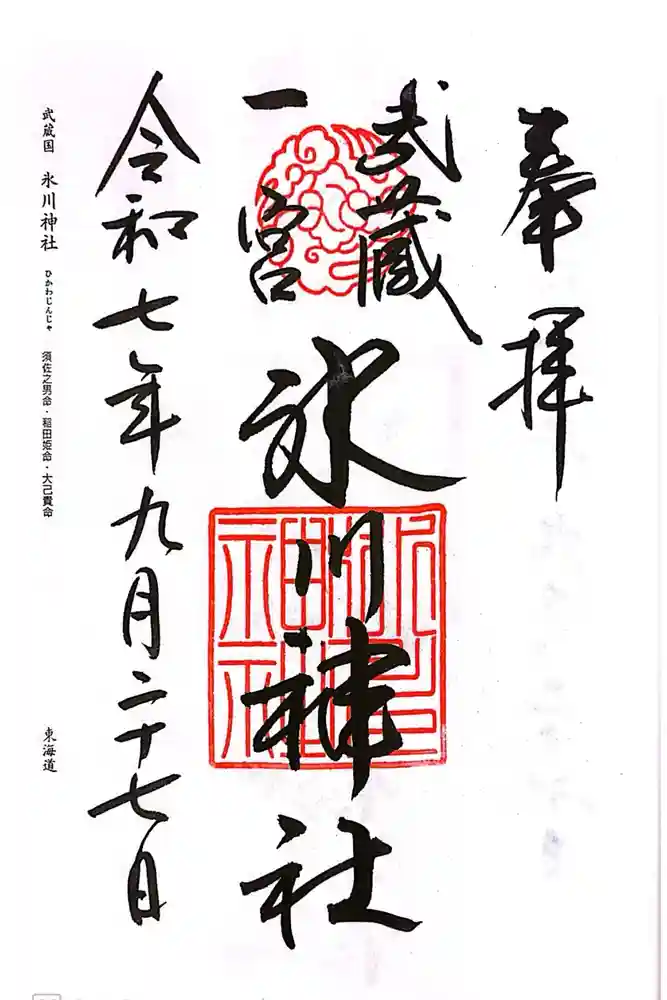 奉拝
武蔵
一宮
氷川神社
令和七年九月二十七日
武蔵国 氷川神社 ひかわじんじゃ 須佐之男命・稲田姫命・大己貴命 東海道